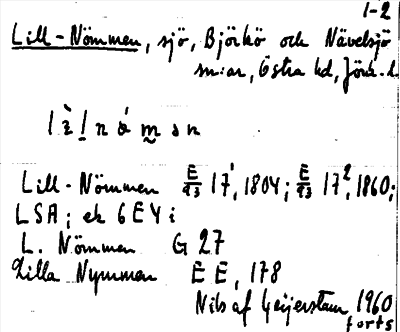 1-2
Lill-Nömmen, sjö, Björkö och Nävelsjö
sn:ar, Östra hd, Jönk. l.
Lill-Nömmen E/93 17¹, 1804; E/93 17², 1860;
LSA; ek 6 E 4 i
L. Nömmen G 27
Lilla Nymmen E E, 178
Nils af Geijerstam 1960
forts